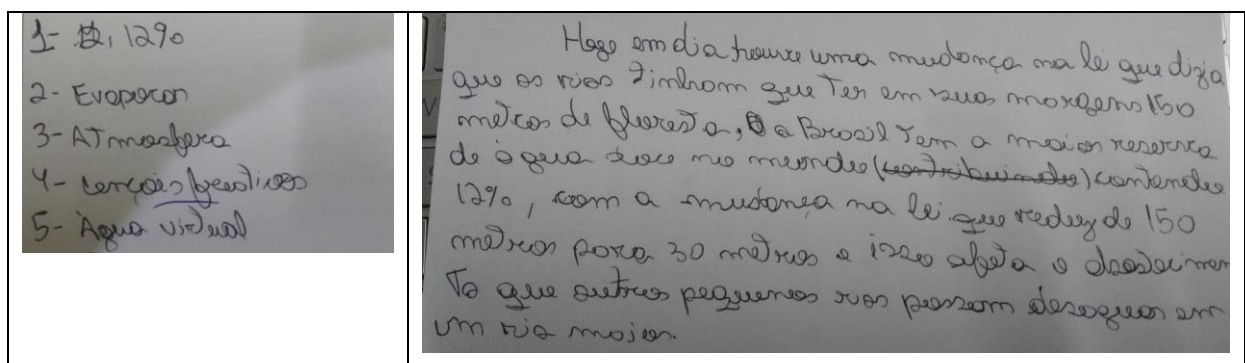 1- 12, 12%
2- Evaporar
3- ATmosfera
4- Lençóis freáticos
5- Água virtual
Hoge em dia houve uma mudança na lei que dizia
que os rios Tinham que Ter em suas margens 150
metros de floresta, o Brasil Tem a maior reserva
de água doce no mundo (contribuindo) contendo
12%, com a mudança na lei que reduz de 150
metros para 30 metros e isso afeta o abastecimen
To que outros pequenos rios possam desaguar em
um rio maior.